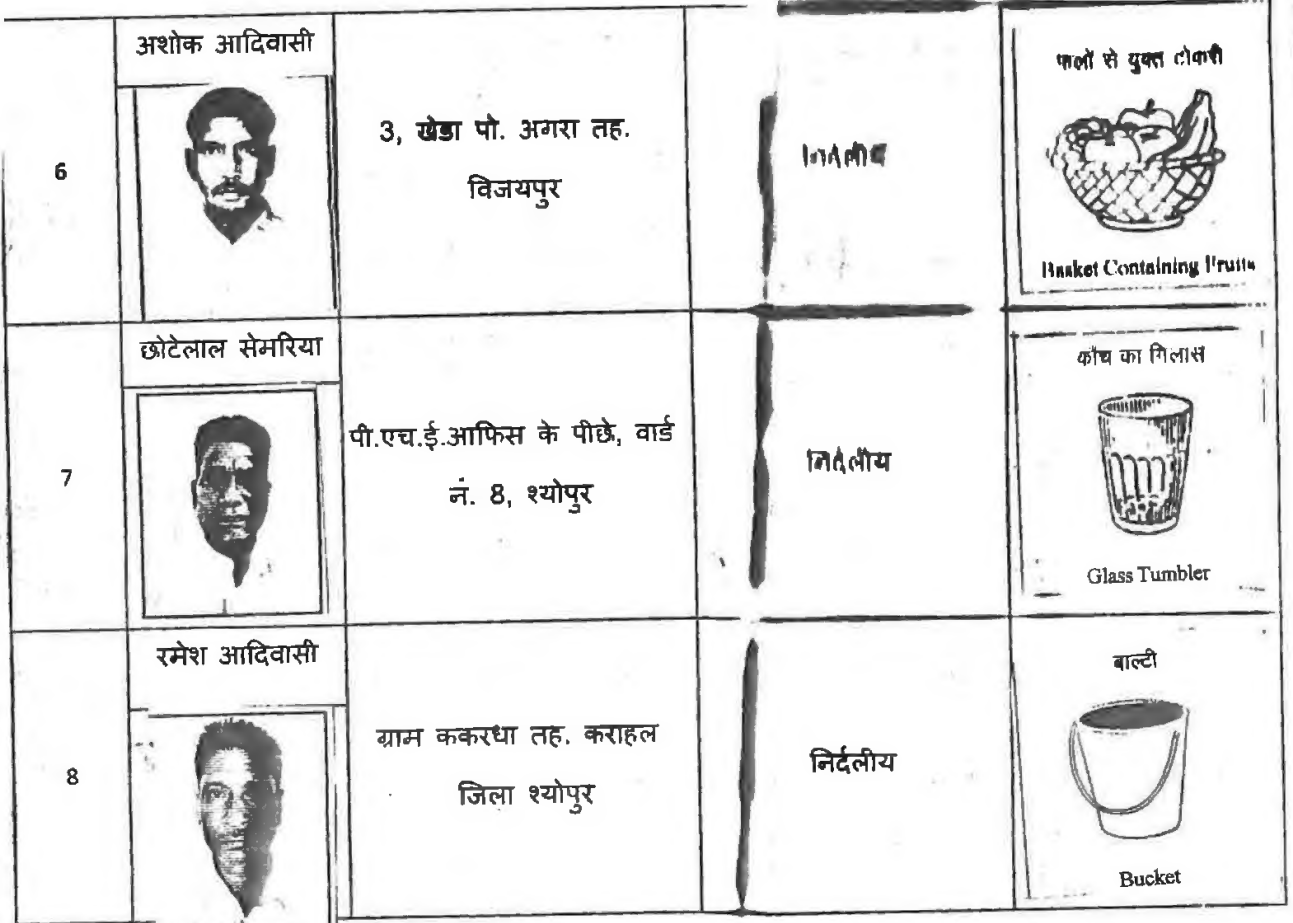 अशोक आदिवासी
6
3, खेडा पो. अगरा तह.
विजयपुर
निर्दलीय
फलों से युक्त टोकरी
Basket Containing Fruits
छोटेलाल सेमरिया
7
पी.एच.ई.आफिस के पीछे, वार्ड
नं. 8, श्योपुर
निर्दलीय
काँच का गिलास
Glass Tumbler
रमेश आदिवासी
8
ग्राम ककरधा तह. कराहल
जिला श्योपुर
निर्दलीय
बाल्टी
Bucket